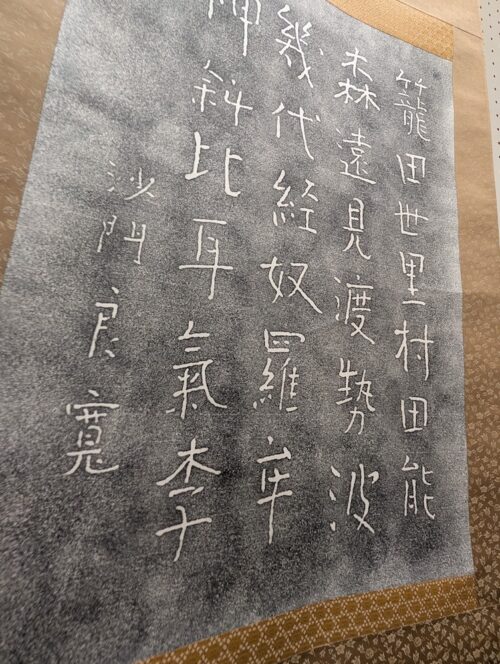 籠田世里村田能
森遠見渡勢波
幾代経奴羅牟
神斜比耳氣李
沙門良寛